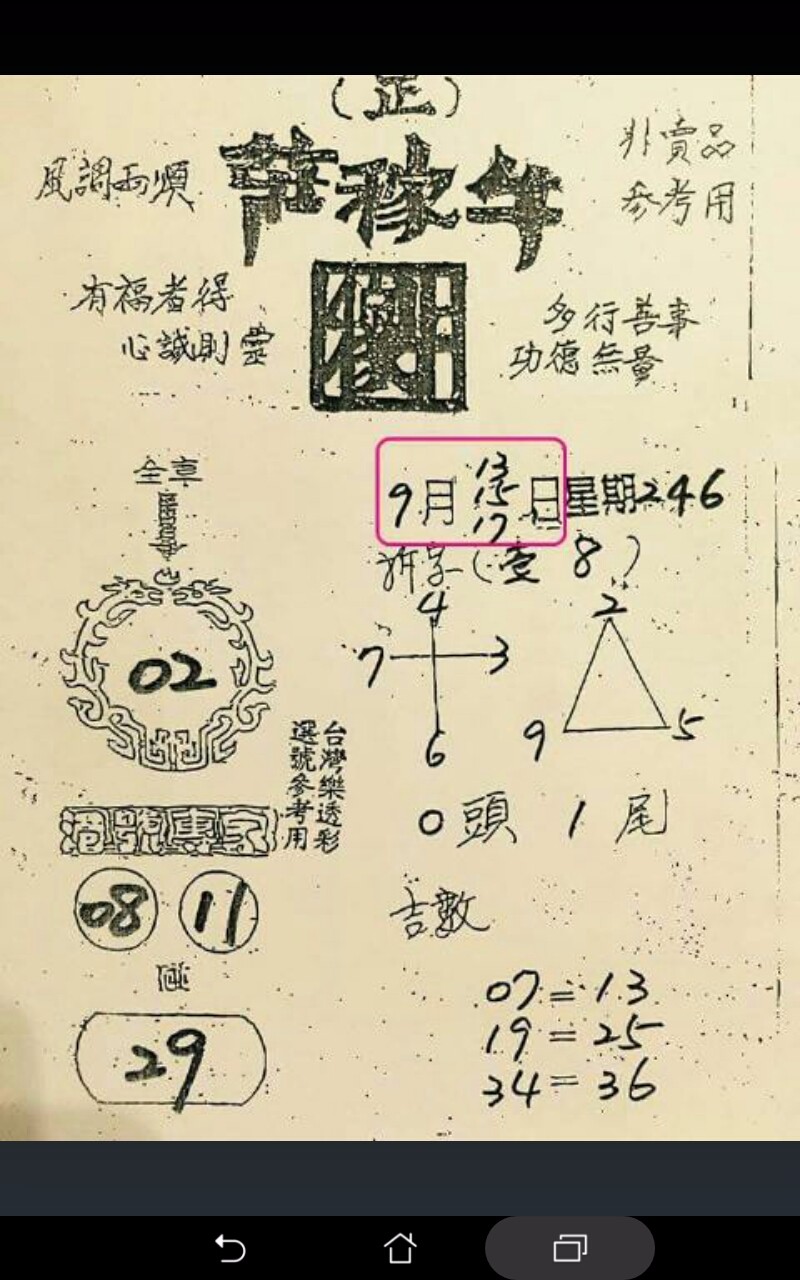 (正)
風調雨順
非賣品
參考用
有福者得
心誠則靈
多行善事
功德無量
全車
9月13 15 17日星期246
拆字(壹8)
4
7 3
6
2
9 5
02
台灣樂透彩
選號參考用
0頭 1尾
港號專家
08 11
吉數
碰
29
07=13
19=25
34=36